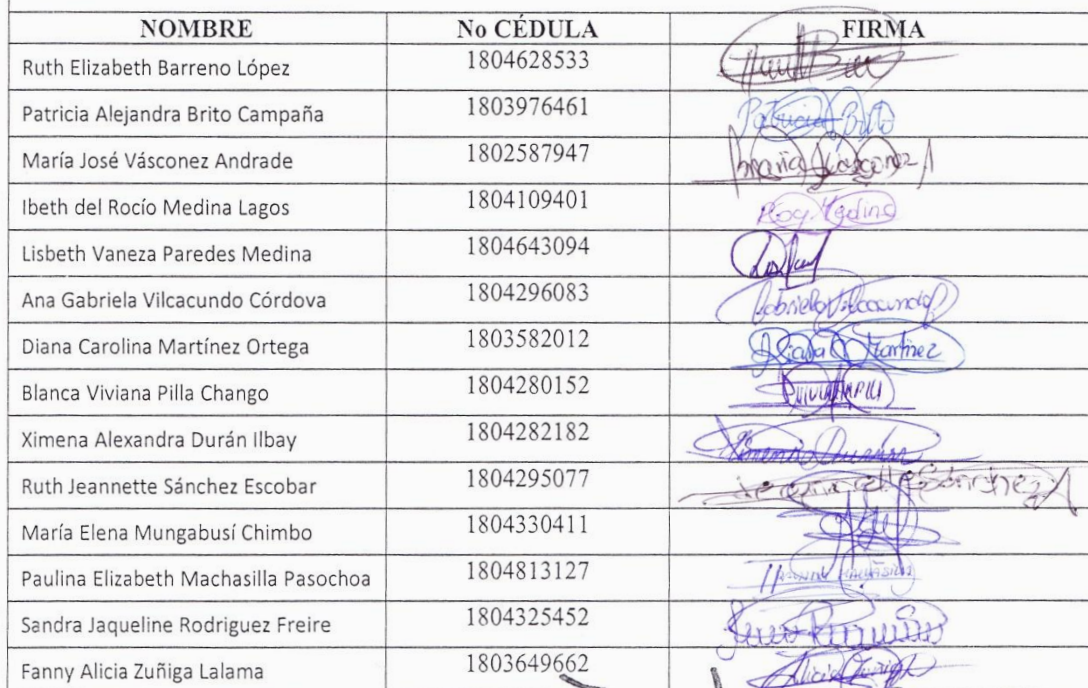 NOMBRE No CÉDULA FIRMA
Ruth Elizabeth Barreno López 1804628533
Patricia Alejandra Brito Campaña 1803976461 Patricia Brito
María José Vásconez Andrade 1802587947 María Vásconez A
Ibeth del Rocío Medina Lagos 1804109401 Medina
Lisbeth Vaneza Paredes Medina 1804643094
Ana Gabriela Vilcacundo Córdova 1804296083 Gabriela Vilcacundo
Diana Carolina Martínez Ortega 1803582012 Diana Martinez
Blanca Viviana Pilla Chango 1804280152
Ximena Alexandra Durán Ilbay 1804282182
Ruth Jeannette Sánchez Escobar 1804295077
María Elena Mungabusí Chimbo 1804330411
Paulina Elizabeth Machasilla Pasochoa 1804813127
Sandra Jaqueline Rodriguez Freire 1804325452
Fanny Alicia Zuñiga Lalama 1803649662